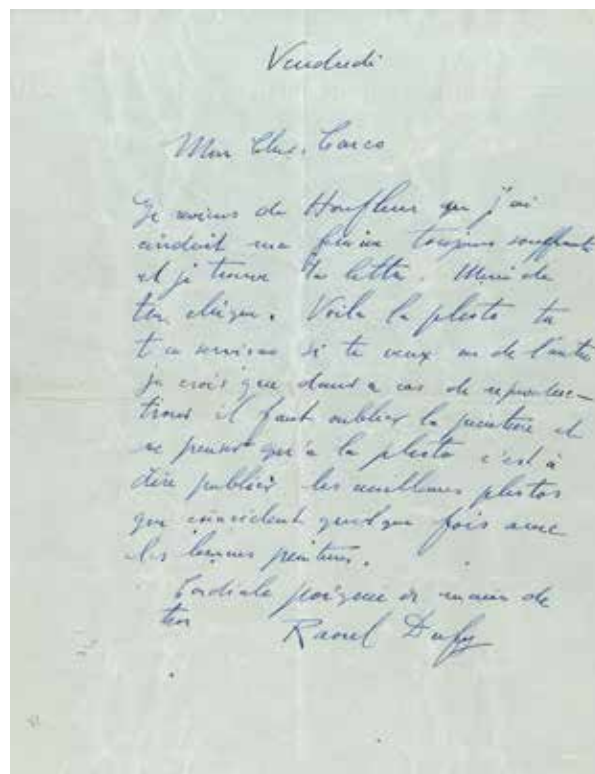 Vendredi
Mon cher Carco
Je reviens de Honfleur que j'ai
conduit ma toujours souffrante
et je trouve ta lettre. Merci de
ton chèque. Voila la photo tu
t'en serviras si tu veux ou de l'autre
je crois que dans ce cas de reproduc-
tions il faut oublier la peinture et
ne penser qu'à la photo c'est à
dire publier les meilleures photos
qui coincident quelque fois avec
les bonnes peintures.
Cordiale poignée de mains de
ton
Raoul Dufy